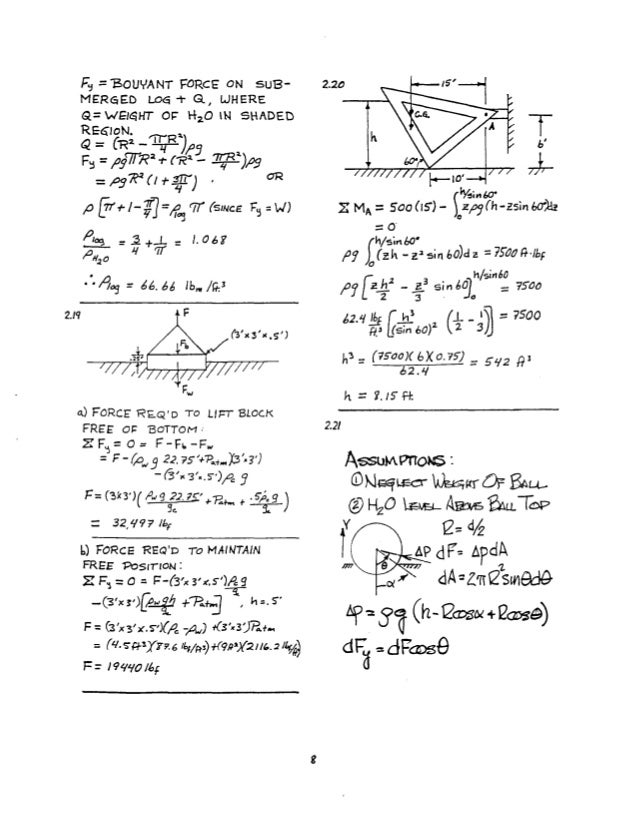 Fy = BOUYANT FORCE ON SUB-
MERGED LOG + Q, WHERE
Q = WEIGHT OF H2O IN SHADED
REGION.
Q = (R² - πR²/4)ρg
Fy = ρgπR² + (R² - πR²/4)ρg
= ρgR²(1 + 3π/4) . OR
ρ[π + 1 - π/4] = ρlog π (SINCE Fy = W)
ρlog/ρH2O = 3/4 + 1/π = 1.068
∴ ρlog = 66.66 lbm/ft³
2.19
F
(3'x3'x.5')
Fb
Fw
a) FORCE REQ'D TO LIFT BLOCK
FREE OF BOTTOM:
ΣFy = 0 = F - Fb - Fw
= F - (ρw g 22.75' + Patm)(3'·3')
- (3'x3'x.5')ρc g
F = (3x3')(ρw g 22.75'/gc + Patm + .5ρc g/gc)
= 32,497 lbf
b) FORCE REQ'D TO MAINTAIN
FREE POSITION:
ΣFy = 0 = F - (3'x3'x.5')ρc g/gc
- (3'x3')[ρw g h/gc + Patm] , h = .5'
F = (3'x3'x.5')(ρc - ρw) + (3'x3')Patm
= (4.5ft³)(87.6 lbf/ft³) + (9ft²)(2116.2 lbf/ft²)
F = 19440 lbf
2.20
15'
C.G.
A
h
6'
60°
10'
ΣMA = 500(15) - ∫₀^(h/sin60°) zρg(h - z sin 60°)dz
= 0
ρg ∫₀^(h/sin60°) (zh - z² sin 60)dz = 7500 ft·lbf
ρg[zh²/2 - z³/3 sin 60]₀^(h/sin60) = 7500
62.4 lbf/ft³ [h³/(sin 60)² (1/2 - 1/3)] = 7500
h³ = (7500)(6)(0.75)/62.4 = 542 ft³
h = 8.15 ft
2.21
ASSUMPTIONS:
① NEGLECT WEIGHT OF BALL
② H2O LEVEL ABOVE BALL TOP
R = d/2
Y
θ
α
ΔP dF = ΔpdA
dA = 2πR² sinθdθ
Δp = ρg(h - Rcosα + Rcosθ)
dFy = dFcosθ
8